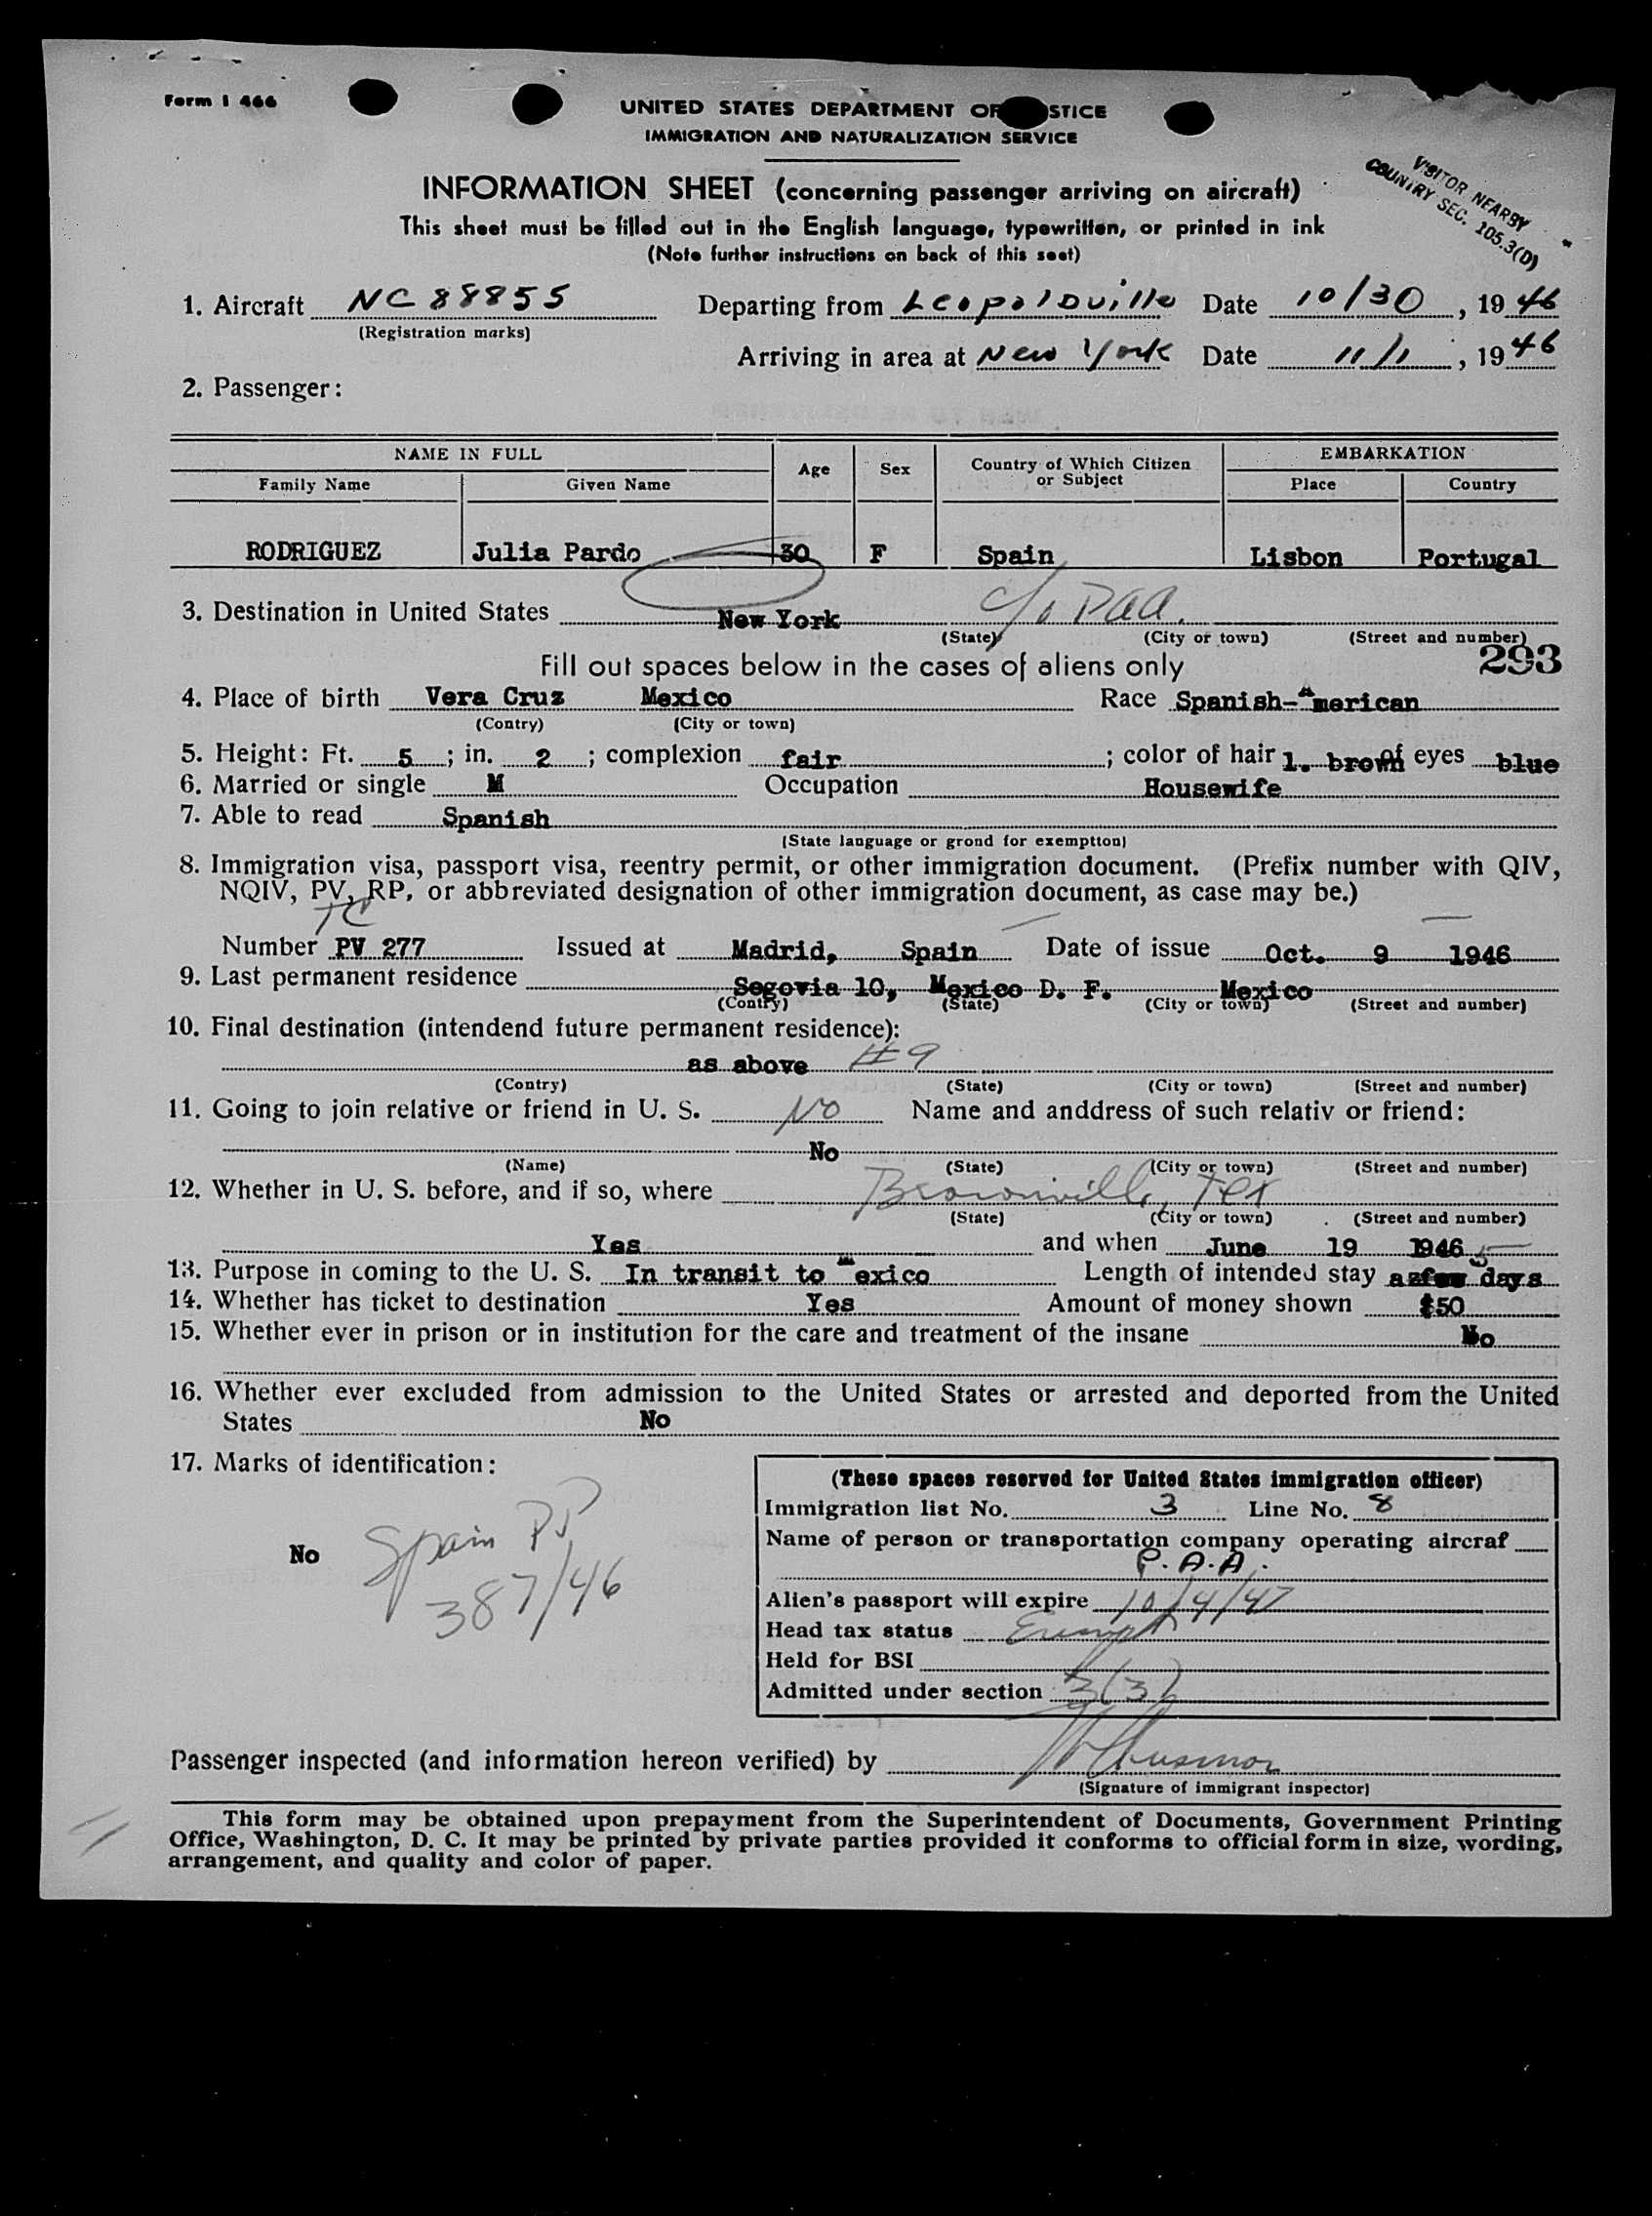 Form I 466
UNITED STATES DEPARTMENT OF STICE
IMMIGRATION AND NATURALIZATION SERVICE
VISITOR NEARBY
COUNTRY SEC. 105.3(D)
INFORMATION SHEET (concerning passenger arriving on aircraft)
This sheet must be filled out in the English language, typewritten, or printed in ink
(Note further instructions on back of this seet)
1. Aircraft NC 88855 Departing from Leopoldville Date 10/30, 1946
(Registration marks)
Arriving in area at New York Date 11/1, 1946
2. Passenger:
NAME IN FULL Age Sex Country of Which Citizen or Subject EMBARKATION
Family Name Given Name Place Country
RODRIGUEZ Julia Pardo 30 F Spain Lisbon Portugal
3. Destination in United States New York c/o Paa.
(State) (City or town) (Street and number)
Fill out spaces below in the cases of aliens only 293
4. Place of birth Vera Cruz Mexico Race Spanish-American
(Contry) (City or town)
5. Height: Ft. 5; in. 2; complexion fair; color of hair l. brown of eyes blue
6. Married or single M Occupation Housewife
7. Able to read Spanish
(State language or grond for exemption)
8. Immigration visa, passport visa, reentry permit, or other immigration document. (Prefix number with QIV,
NQIV, PV, RP, or abbreviated designation of other immigration document, as case may be.)
TC
Number PV 277 Issued at Madrid, Spain Date of issue Oct. 9 1946
9. Last permanent residence Segovia 10, Mexico D. F. Mexico
(Contry) (State) (City or town) (Street and number)
10. Final destination (intendend future permanent residence):
as above #9
(Contry) (State) (City or town) (Street and number)
11. Going to join relative or friend in U. S. No Name and anddress of such relativ or friend:
No
(Name) (State) (City or town) (Street and number)
12. Whether in U. S. before, and if so, where Brownville, Tex
(State) (City or town) (Street and number)
Yes and when June 19 1946 5
13. Purpose in coming to the U. S. In transit to Mexico Length of intended stay a few days
14. Whether has ticket to destination Yes Amount of money shown $50
15. Whether ever in prison or in institution for the care and treatment of the insane No
16. Whether ever excluded from admission to the United States or arrested and deported from the United
States No
17. Marks of identification:
No Spain PP
387/46
(These spaces reserved for United States immigration officer)
Immigration list No. 3 Line No. 8
Name of person or transportation company operating aircraf
P.A.A.
Alien's passport will expire 10/4/47
Head tax status Exempt
Held for BSI
Admitted under section 3(3)
Passenger inspected (and information hereon verified) by
(Signature of immigrant inspector)
This form may be obtained upon prepayment from the Superintendent of Documents, Government Printing
Office, Washington, D. C. It may be printed by private parties provided it conforms to official form in size, wording,
arrangement, and quality and color of paper.